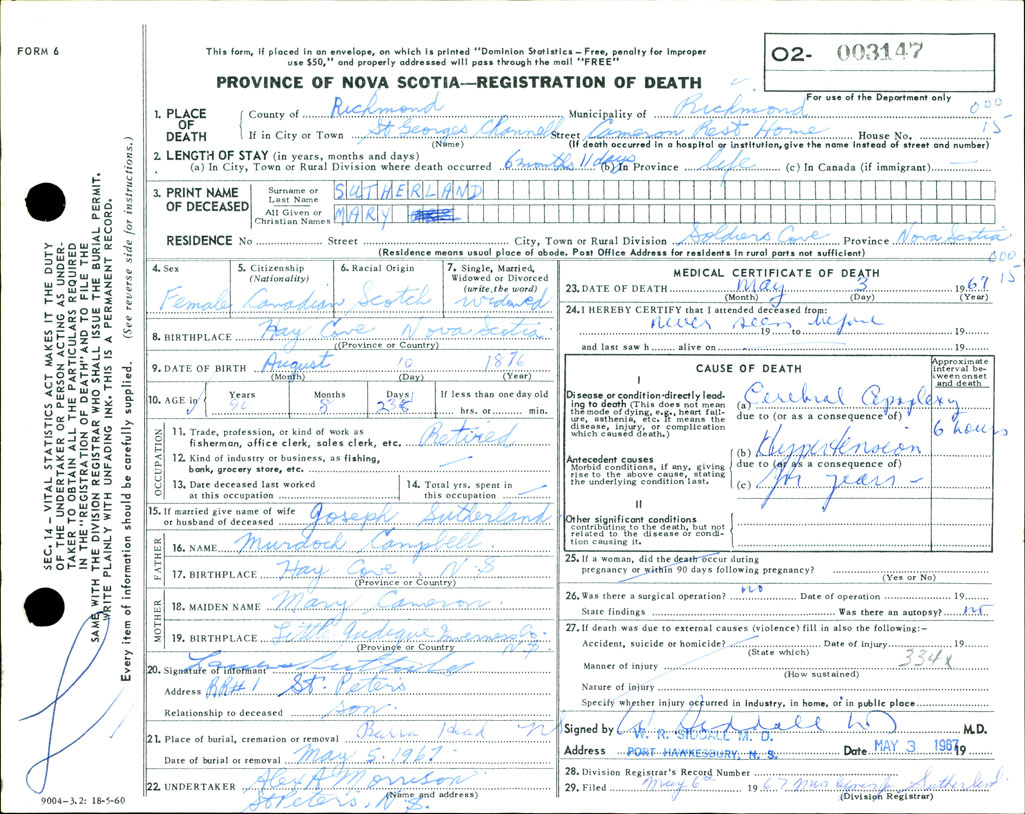 FORM 6
This form, if placed in an envelope, on which is printed "Dominion Statistics—Free, penalty for improper
use $50," and properly addressed will pass through the mail "FREE"
O2- 003147
PROVINCE OF NOVA SCOTIA—REGISTRATION OF DEATH
For use of the Department only
000
15
1. PLACE OF DEATH
County of Richmond Municipality of Richmond
If in City or Town St Georges Channel Street Cameron Rest Home House No.
(Name) (If death occurred in a hospital or institution, give the name instead of street and number)
2. LENGTH OF STAY (in years, months and days)
(a) In City, Town or Rural Division where death occurred 6 months 11 days (b) In Province life (c) In Canada (if immigrant) —
3. PRINT NAME OF DECEASED
Surname or Last Name SUTHERLAND
All Given or Christian Names MARY
RESIDENCE No Street City, Town or Rural Division Soldiers Cove Province Nova Scotia
(Residence means usual place of abode. Post Office Address for residents in rural parts not sufficient)
000
15
4. Sex Female
5. Citizenship (Nationality) Canadian
6. Racial Origin Scotch
7. Single, Married, Widowed or Divorced (write the word) Widowed
8. BIRTHPLACE Hay Cove Nova Scotia
((Province or Country)
9. DATE OF BIRTH August 10 1876
(Month) (Day) (Year)
10. AGE in Years Months 8 Days If less than one day old hrs. or min.
OCCUPATION
11. Trade, profession, or kind of work as fisherman, office clerk, sales clerk, etc. Retired
12. Kind of industry or business, as fishing, bank, grocery store, etc. —
13. Date deceased last worked at this occupation
14. Total yrs. spent in this occupation —
15. If married give name of wife or husband of deceased Joseph Sutherland
FATHER
16. NAME Murdoch Campbell
17. BIRTHPLACE Hay Cove, N.S
(Province or Country)
MOTHER
18. MAIDEN NAME Mary Cameron
19. BIRTHPLACE Little Judique Inverness Co. N.S.
(Province or Country)
20. Signature of informant Sutherland
Address RR#1 St. Peters
Relationship to deceased son
21. Place of burial, cremation or removal Barra Head N
Date of burial or removal May 5. 1967
22. UNDERTAKER Alex A Morrison
(Name and address)
St Peters, N.S.
MEDICAL CERTIFICATE OF DEATH
23. DATE OF DEATH May 3 1967
(Month) (Day) (Year)
24. I HEREBY CERTIFY that I attended deceased from:
never seen before
19 to 19
and last saw h alive on 19
CAUSE OF DEATH
Approximate interval between onset and death
I
Disease or condition directly leading to death (This does not mean the mode of dying, e.g., heart failure, asthenia, etc. It means the disease, injury, or complication which caused death.)
(a) Cerebral Apoplexy
due to (or as a consequence of)
6 hours
Antecedent causes
Morbid conditions, if any, giving rise to the above cause, stating the underlying condition last.
(b) Hypertension
due to (or as a consequence of)
(c) for years —
II
Other significant conditions contributing to the death, but not related to the disease or condition causing it.
25. If a woman, did the death occur during pregnancy or within 90 days following pregnancy?
(Yes or No)
26. Was there a surgical operation? no Date of operation 19
State findings Was there an autopsy? no
27. If death was due to external causes (violence) fill in also the following:-
Accident, suicide or homicide? Date of injury 19
(State which)
334x
Manner of injury
(How sustained)
Nature of injury
Specify whether injury occurred in industry, in home, or in public place
Signed by W Siddall M.D.
W. R. SIDDALL M. D.
Address PORT HAWKESBURY, N. S. Date MAY 3 1967 19
28. Division Registrar's Record Number
29. Filed May 6th 1967 Mrs Sutherland
(Division Registrar)
9004-3.2: 18-5-60
SEC. 14 - VITAL STATISTICS ACT MAKES IT THE DUTY
OF THE UNDERTAKER OR PERSON ACTING AS UNDER-
TAKER TO OBTAIN ALL THE PARTICULARS REQUIRED
IN THE "REGISTRATION OF DEATH" AND TO FILE THE
SAME WITH THE DIVISION REGISTRAR WHO SHALL ISSUE THE BURIAL PERMIT.
WRITE PLAINLY WITH UNFADING INK. THIS IS A PERMANENT RECORD.
Every item of information should be carefully supplied. (See reverse side for instructions.)